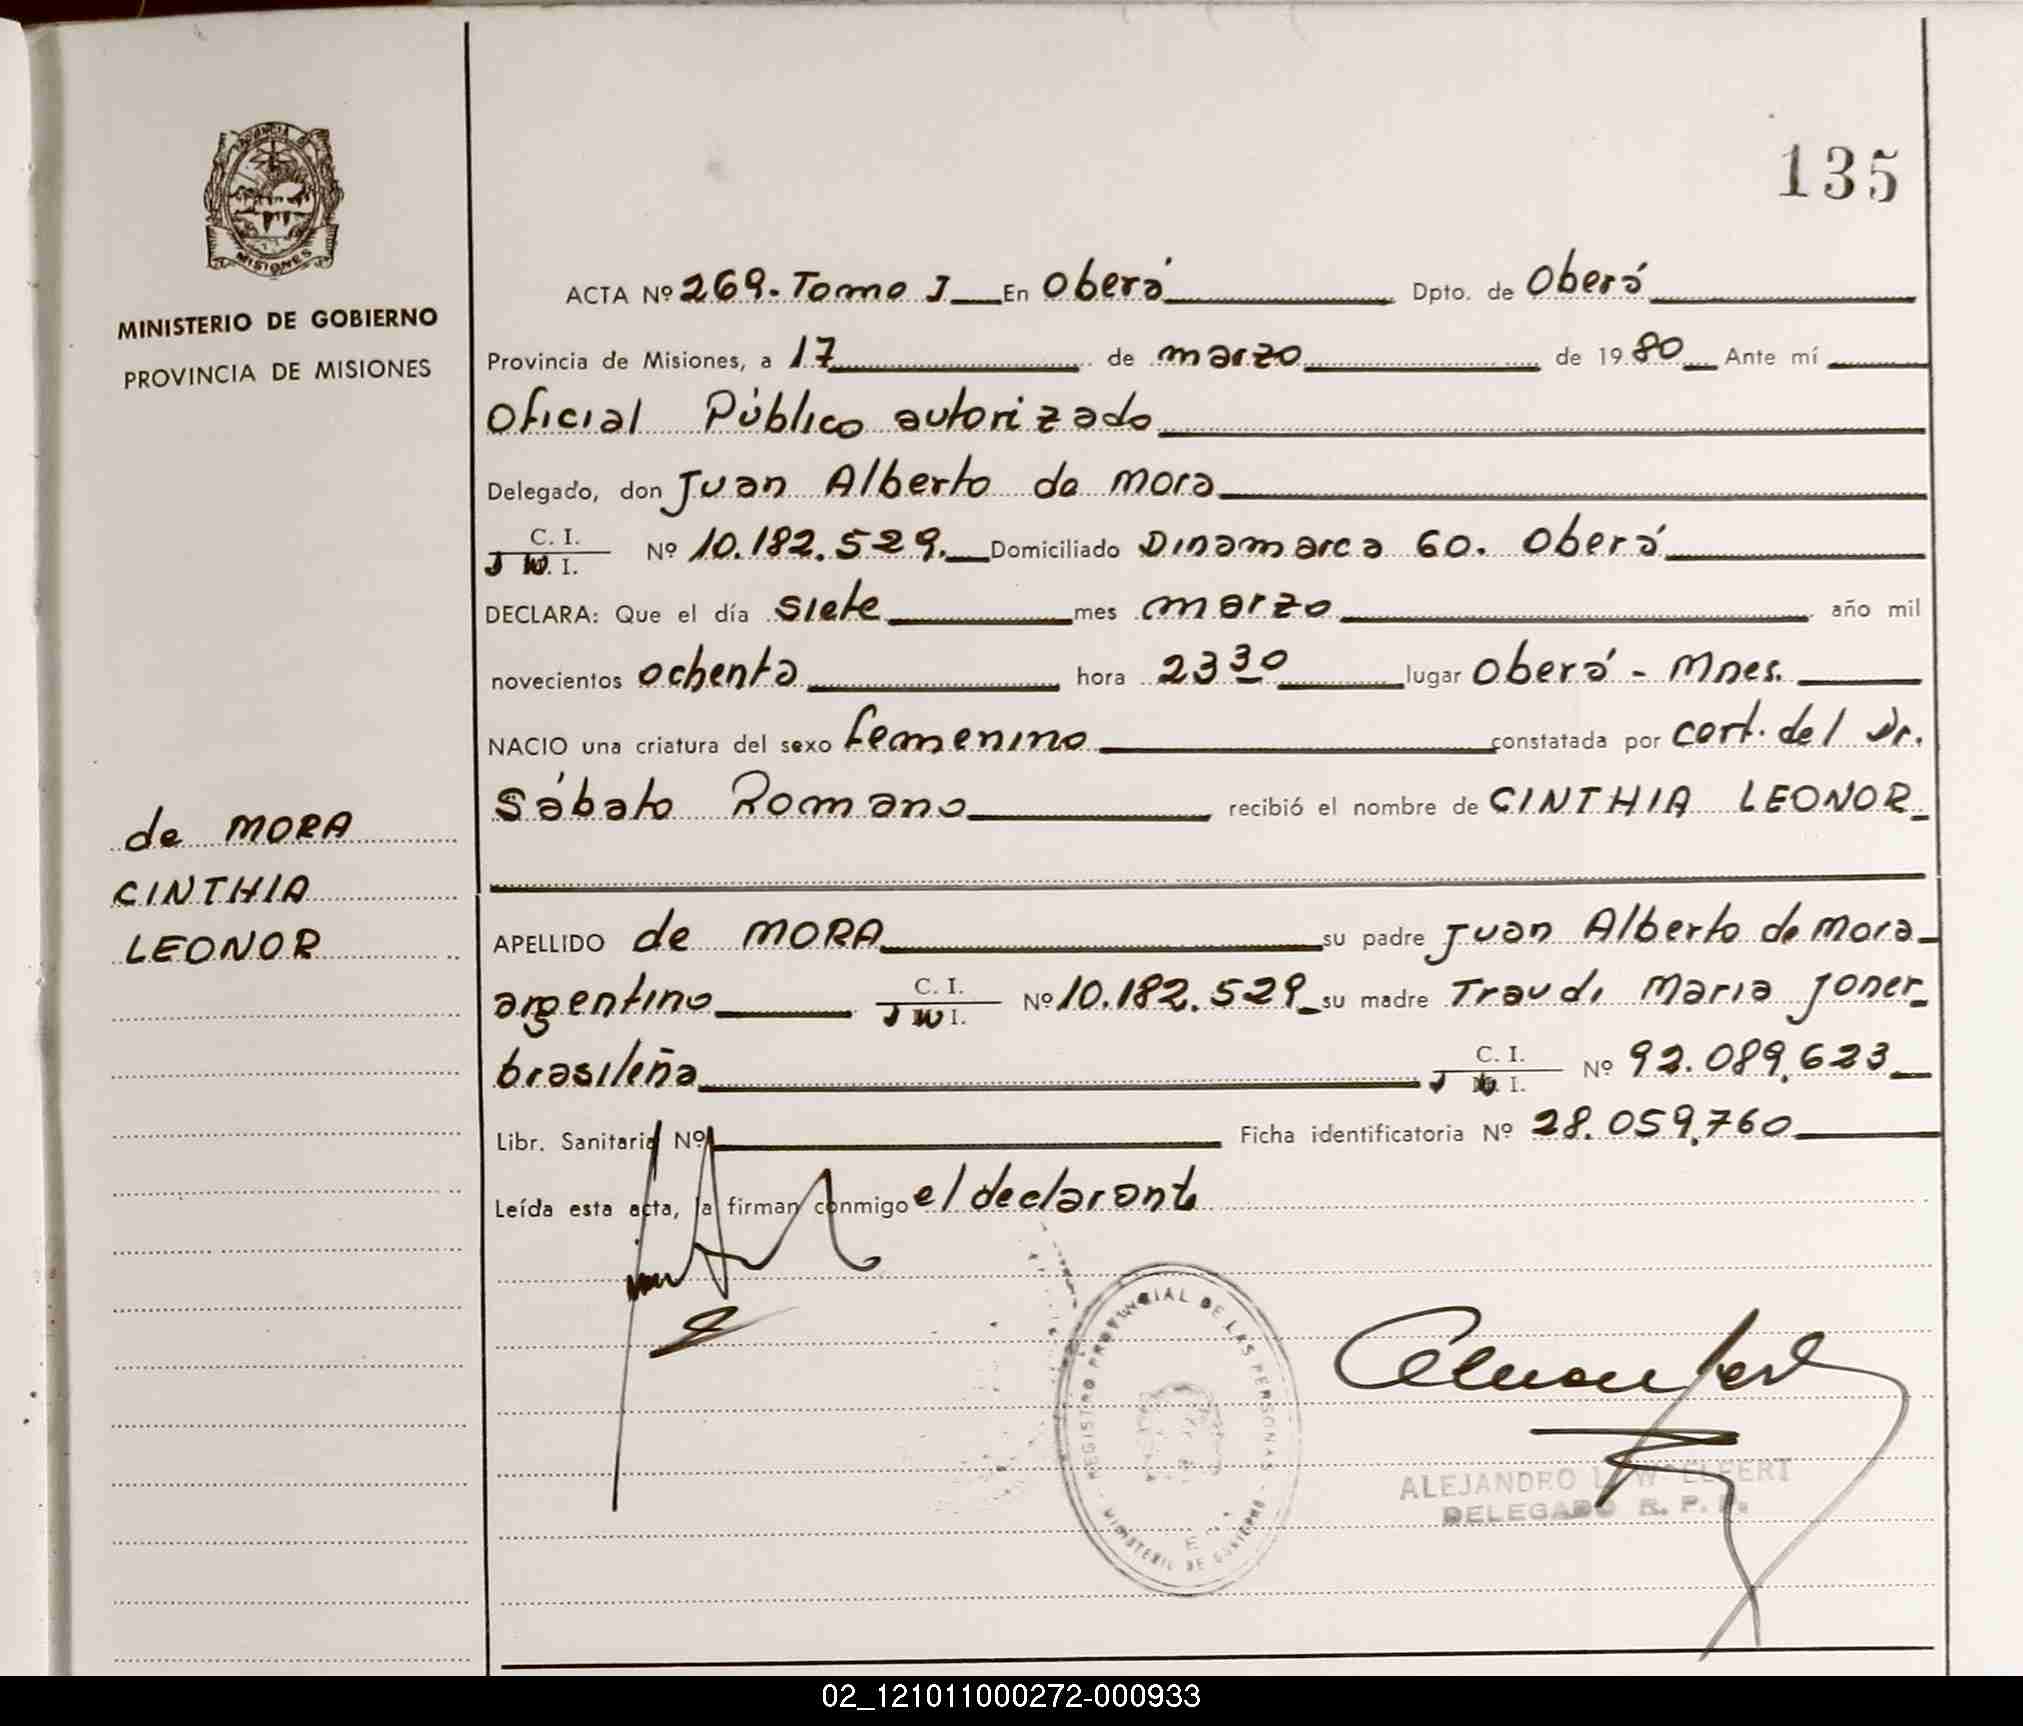 135
MISIONES
MINISTERIO DE GOBIERNO
PROVINCIA DE MISIONES
de MORA
CINTHIA
LEONOR
ACTA Nº 269.Tomo I En Oberá Dpto. de Oberá
Provincia de Misiones, a 17 de marzo de 1980 Ante mí
Oficial Público autorizado
Delegado, don Juan Alberto de Mora
C. I.
Nº 10.182.529. Domiciliado Dinamarca 60. Oberá
I.
DECLARA: Que el día siete mes marzo año mil
novecientos ochenta hora 23 30 lugar Oberá - Mnes.
NACIO una criatura del sexo femenino constatada por cert. del Dr.
Sábato Romano recibió el nombre de CINTHIA LEONOR
APELLIDO de MORA su padre Juan Alberto de Mora
argentino C. I. Nº 10.182.529 su madre Traudi Maria Joner
I.
brasileña C. I. Nº 92.089.623
I.
Libr. Sanitaria Nº Ficha identificatoria Nº 28.059.760
Leída esta acta, la firman conmigo el declarante
REGISTRO PROVINCIAL DE LAS PERSONAS
MINISTERIO DE GOBIERNO
ALEJANDRO
DELEGADO R. P. P.
02_121011000272-000933